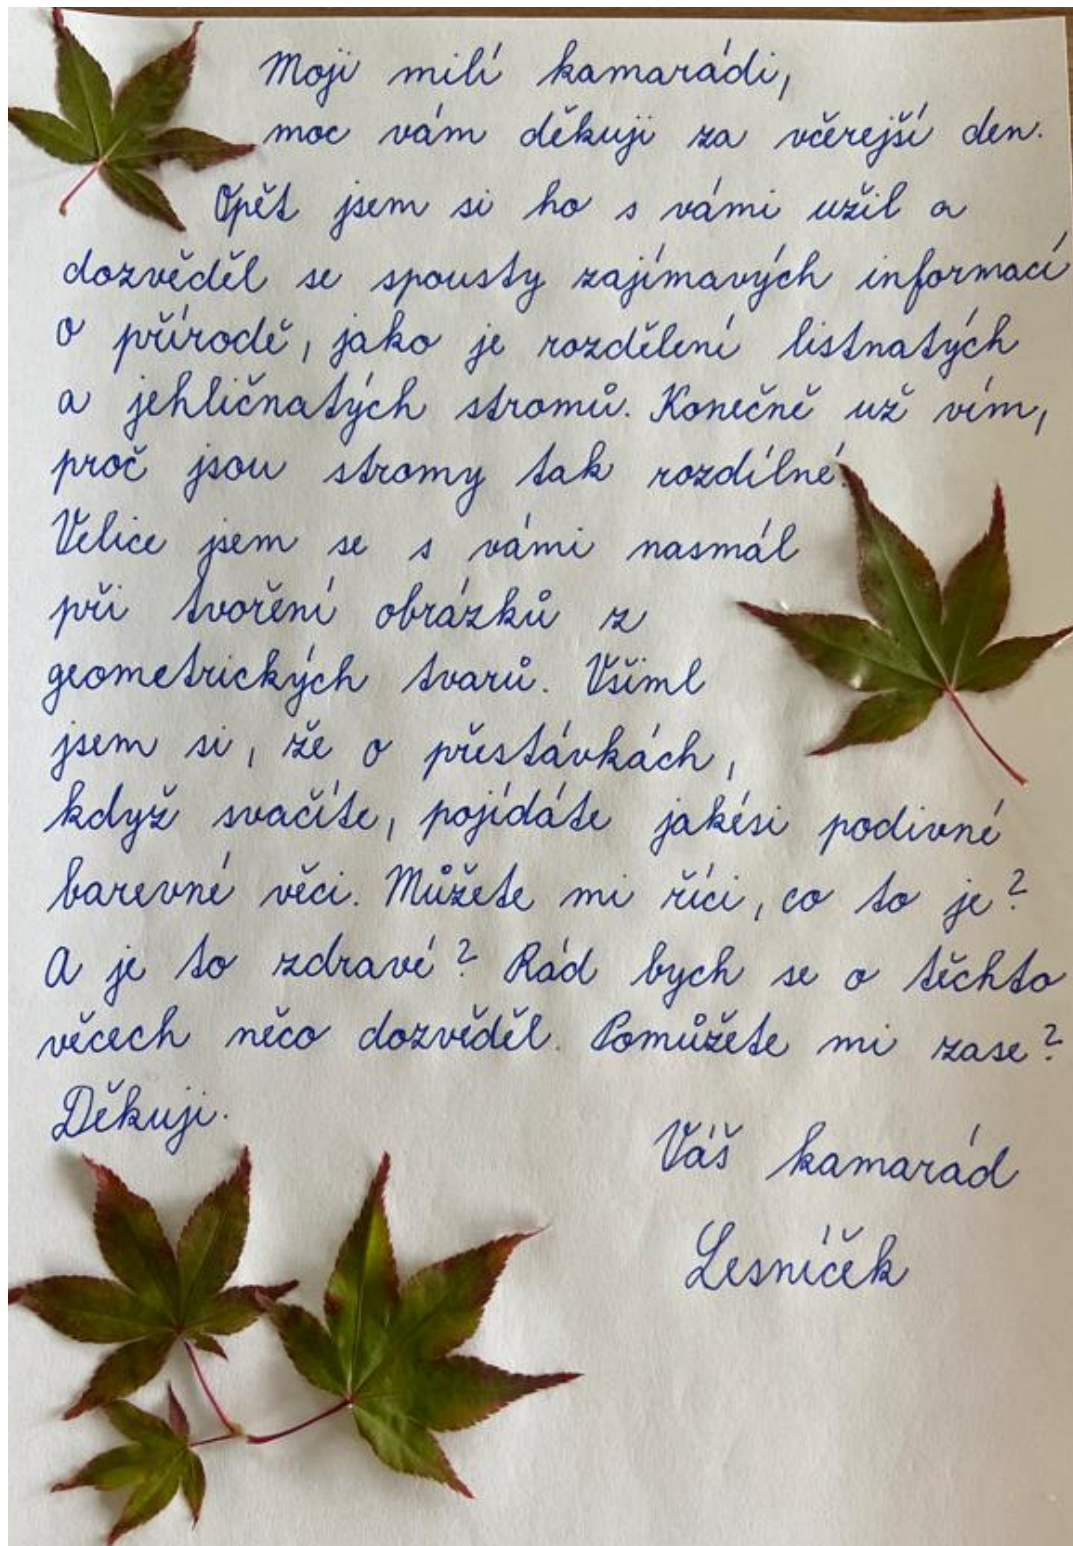 Moji milí kamarádi,
moc vám děkuji za včerejší den.
Opět jsem si ho s vámi užil a
dozvěděl se spousty zajímavých informací
o přírodě, jako je rozdělení listnatých
a jehličnatých stromů. Konečně už vím,
proč jsou stromy tak rozdílné.
Velice jsem se s vámi nasmál
při tvoření obrázků z
geometrických tvarů. Všiml
jsem si, že o přestávkách,
když svačíte, pojídáte jakési podivné
barevné věci. Můžete mi říci, co to je?
A je to zdravé? Rád bych se o těchto
věcech něco dozvěděl. Pomůžete mi zase?
Děkuji.
Váš kamarád
Lesníček